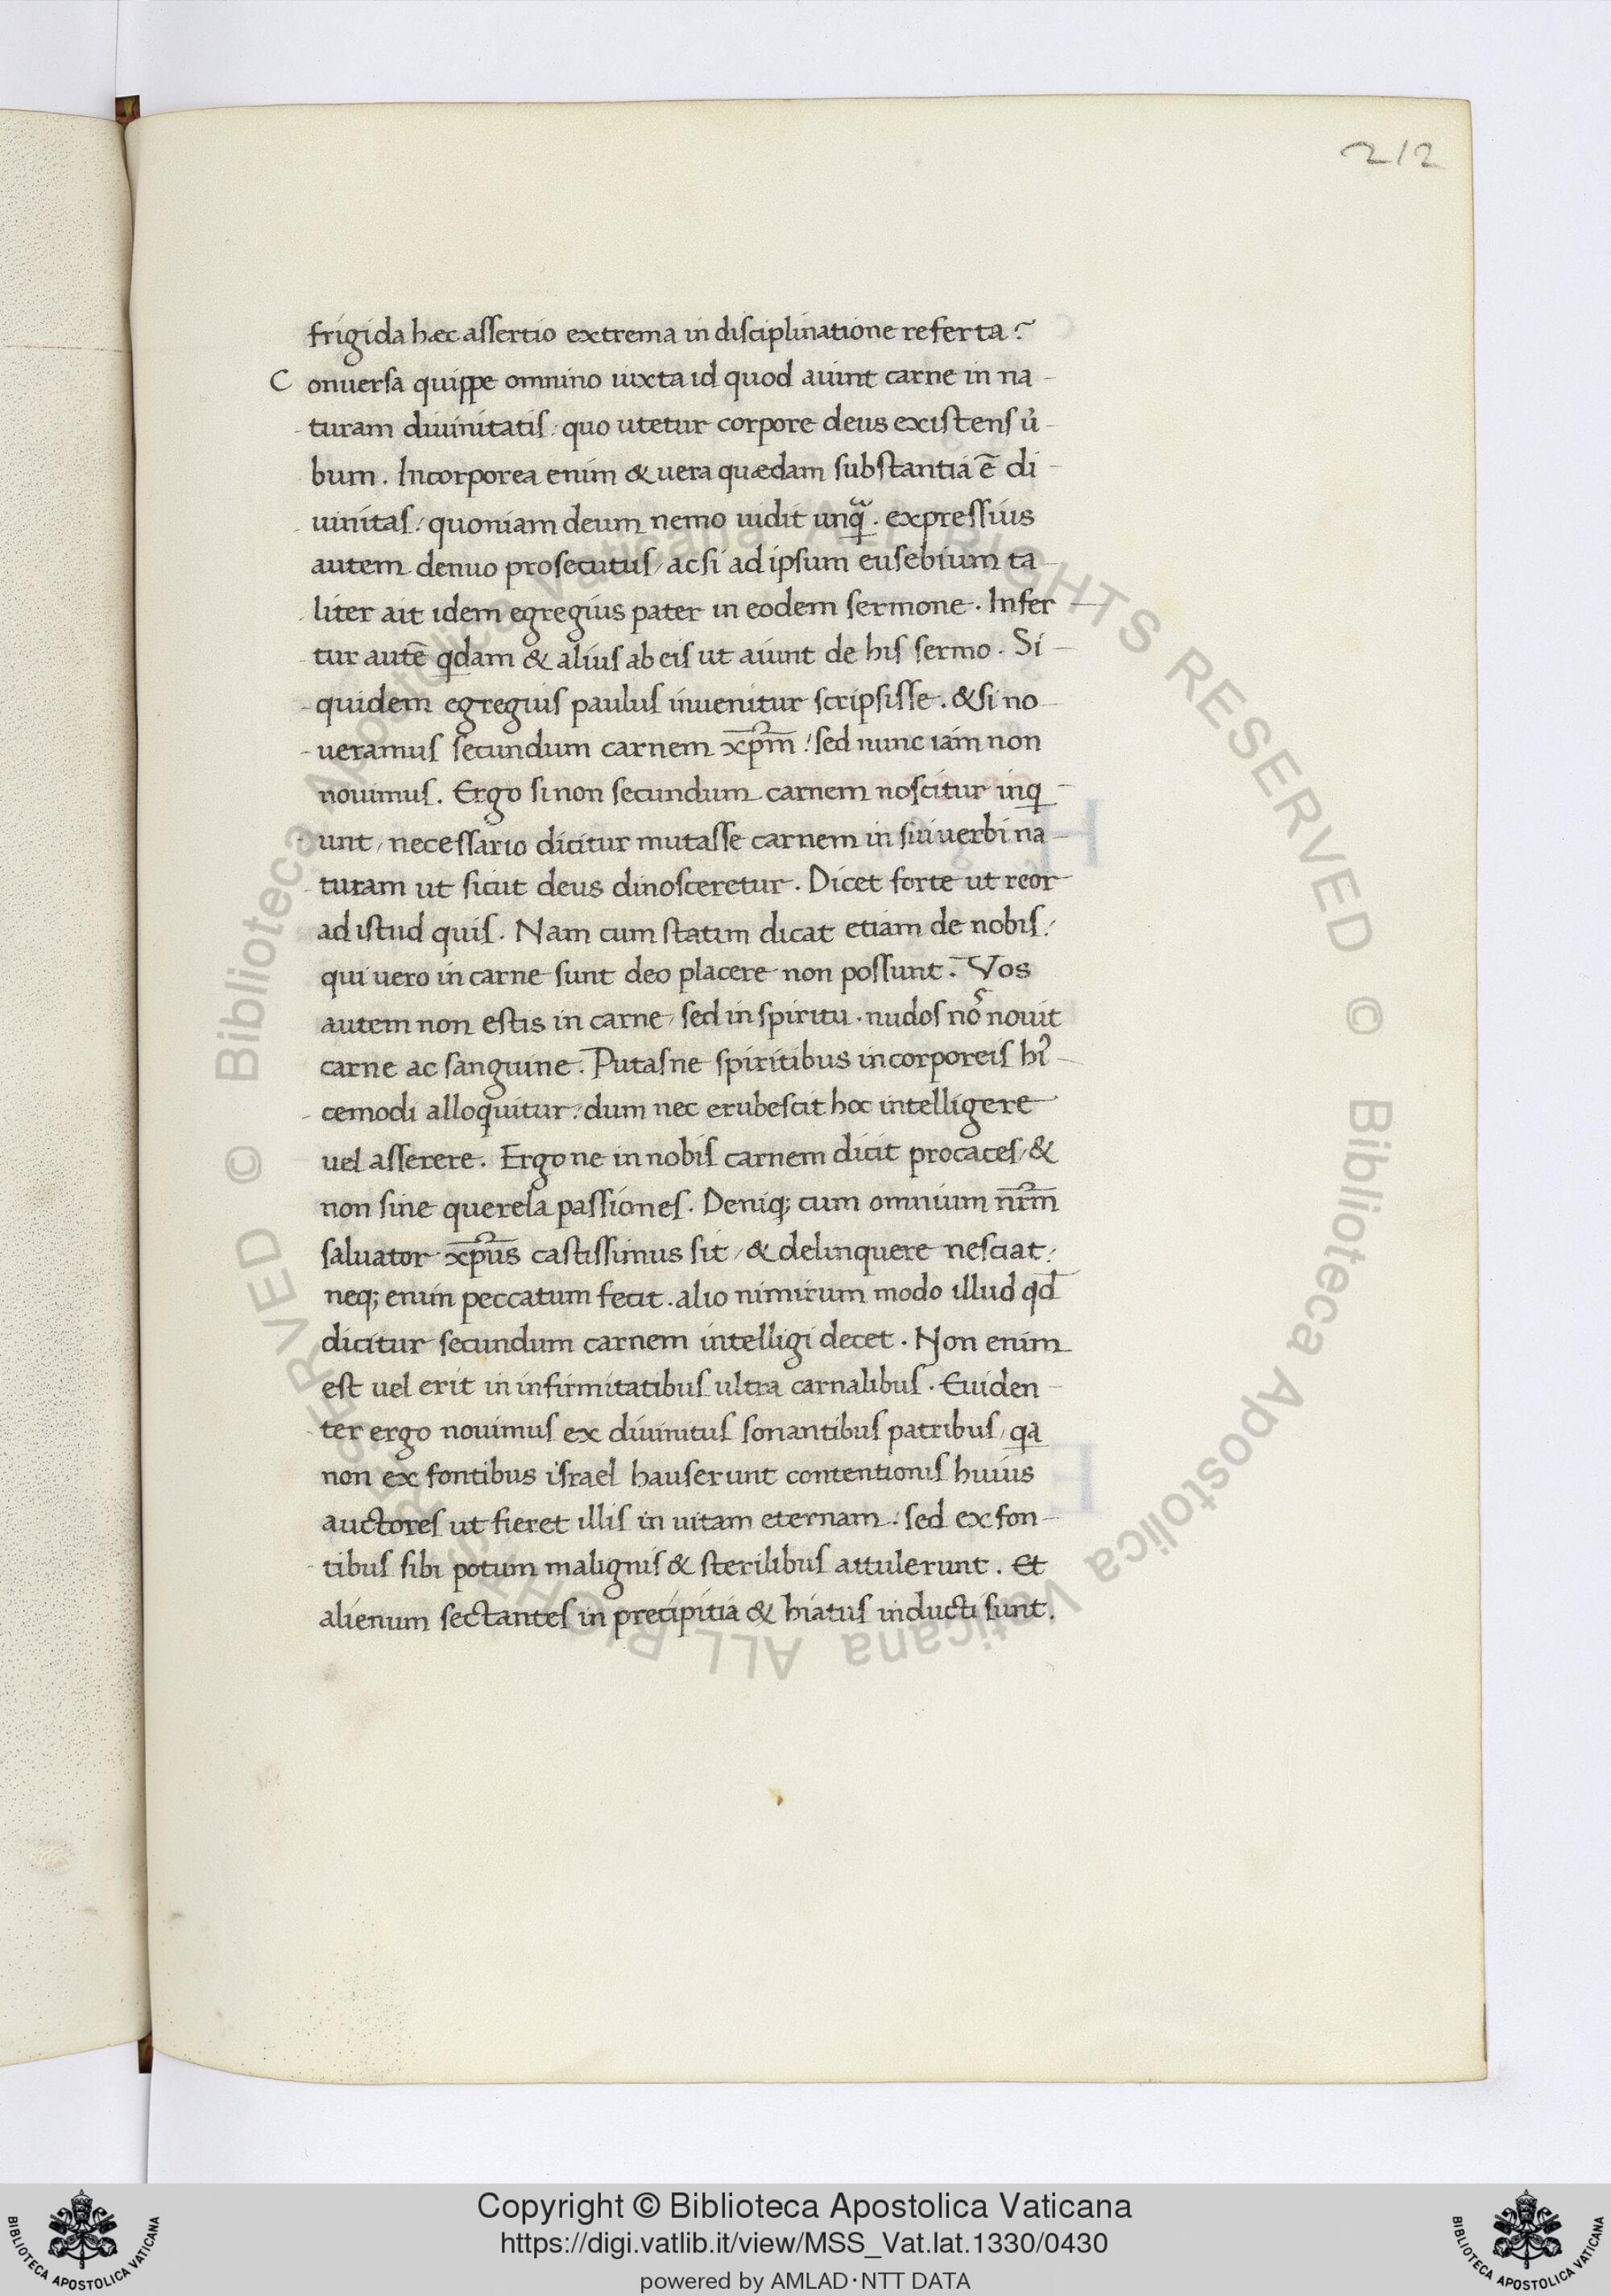 212
frigida hæc assertio extrema in disciplinatione referta?
Conuersa quippe omnino iuxta id quod aiunt carne in na-
turam diuinitatis: quo utetur corpore deus existens u̓
bum. Incorporea enim & uera quædam substantia ē di-
uinitas: quoniam deum nemo uidit unq̃. expressius
autem denuo prosecutus, ac si ad ipsum eusebium ta-
liter ait idem egregius pater in eodem sermone. Infer-
tur autē qdam & alius ab eis ut aiunt de his sermo. Si-
quidem egregius paulus inuenitur scripsisse. & si no-
ueramus secundum carnem xp̄m: sed nunc iam non
nouimus. Ergo si non secundum carnem noscitur inq-
unt, necessario dicitur mutasse carnem in sui uerbi na-
turam ut sicut deus dinosceretur. Dicet forte ut reor
ad istud quis. Nam cum statim dicat etiam de nobis:
qui uero in carne sunt deo placere non possunt. Vos
autem non estis in carne, sed in spiritu. nudos nos nouit
carne ac sanguine. Putasne spiritibus incorporeis hi̓-
cemodi alloquitur: dum nec erubescit hoc intelligere
uel asserere. Ergone in nobis carnem dicit procaces, &
non sine querela passiones. Deniq; cum omnium nr̄m
saluator xp̄us castissimus sit, & delinquere nesciat:
neq; enim peccatum fecit. alio nimirum modo illud qd̄
dicitur secundum carnem intelligi decet. Non enim
est uel erit in infirmitatibus ultra carnalibus. Euiden-
ter ergo nouimus ex diuinitus sonantibus patribus, qa
non ex fontibus israel hauserunt contentionis huius
auctores ut fieret illis in uitam eternam: sed ex fon-
tibus sibi potum malignis & sterilibus attulerunt. Et
alienum sectantes in precipitia & hiatus inducti sunt.
© Biblioteca Apostolica Vaticana ALL RIGHTS RESERVED
© Biblioteca Apostolica Vaticana ALL RIGHTS RESERVED
Copyright © Biblioteca Apostolica Vaticana
https://digi.vatlib.it/view/MSS_Vat.lat.1330/0430
powered by AMLAD·NTT DATA
BIBLIOTECA APOSTOLICA VATICANA
BIBLIOTECA APOSTOLICA VATICANA